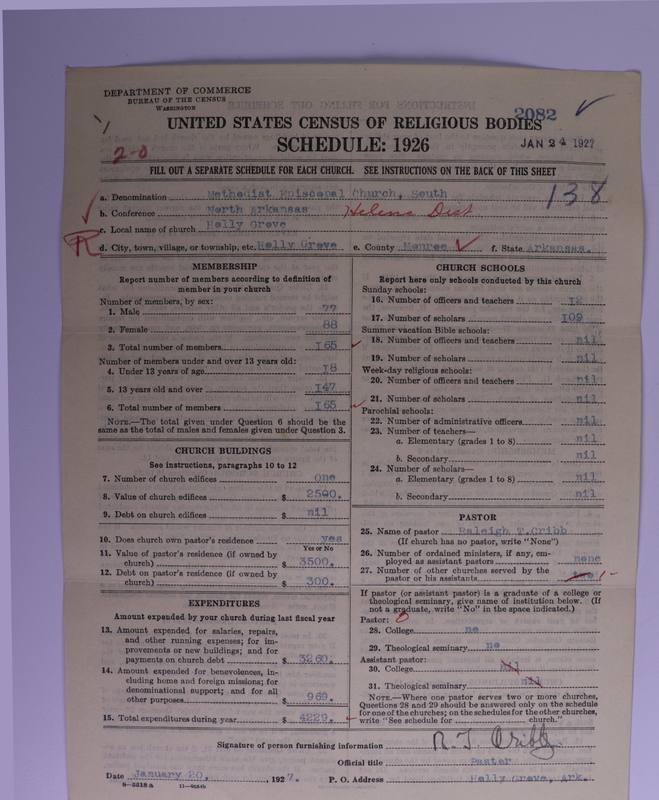 DEPARTMENT OF COMMERCE
BUREAU OF THE CENSUS
WASHINGTON
2082
UNITED STATES CENSUS OF RELIGIOUS BODIES
SCHEDULE: 1926
JAN 24 1927
2-0
FILL OUT A SEPARATE SCHEDULE FOR EACH CHURCH. SEE INSTRUCTIONS ON THE BACK OF THIS SHEET
138
a. Denomination Methodist Episcopal Church, South
b. Conference North Arkansas Helena Dist
c. Local name of church Holly Grove
R
d. City, town, village, or township, etc. Holly Grove e. County Monroe f. State Arkansas.
MEMBERSHIP
Report number of members according to definition of member in your church
Number of members, by sex:
1. Male 77
2. Female 88
3. Total number of members 165
Number of members under and over 13 years old:
4. Under 13 years of age 18
5. 13 years old and over 147
6. Total number of members 165
NOTE.—The total given under Question 6 should be the
same as the total of males and females given under Question 3.
CHURCH BUILDINGS
See instructions, paragraphs 10 to 12
7. Number of church edifices one
8. Value of church edifices $ 2500.
9. Debt on church edifices $ nil
10. Does church own pastor's residence yes
Yes or No
11. Value of pastor's residence (if owned by
church) $ 3500.
12. Debt on pastor's residence (if owned by
church) $ 300.
EXPENDITURES
Amount expended by your church during last fiscal year
13. Amount expended for salaries, repairs,
and other running expenses; for im-
provements or new buildings; and for
payments on church debt $ 3260.
14. Amount expended for benevolences, in-
cluding home and foreign missions; for
denominational support; and for all
other purposes $ 969.
15. Total expenditures during year $ 4229.
CHURCH SCHOOLS
Report here only schools conducted by this church
Sunday schools:
16. Number of officers and teachers 12
17. Number of scholars 109
Summer vacation Bible schools:
18. Number of officers and teachers nil
19. Number of scholars nil
Week-day religious schools:
20. Number of officers and teachers nil
21. Number of scholars nil
Parochial schools:
22. Number of administrative officers nil
23. Number of teachers—
a. Elementary (grades 1 to 8) nil
b. Secondary nil
24. Number of scholars—
a. Elementary (grades 1 to 8) nil
b. Secondary nil
PASTOR
25. Name of pastor Raleigh T. Cribb
(If church has no pastor, write "None")
26. Number of ordained ministers, if any, em-
ployed as assistant pastors none
27. Number of other churches served by the
pastor or his assistants two 1-
If pastor (or assistant pastor) is a graduate of a college or
theological seminary, give name of institution below. (If
not a graduate, write "No" in the space indicated.)
Pastor: 0
28. College no
29. Theological seminary no
Assistant pastor:
30. College nil
31. Theological seminary nil
NOTE.—Where one pastor serves two or more churches,
Questions 28 and 29 should be answered only on the schedule
for one of the churches; on the schedules for the other churches,
write "See schedule for church."
Signature of person furnishing information R. T. Cribb
Official title Pastor
Date January 20, 1927. P. O. Address Holly Grove, Ark.
8-5318 a